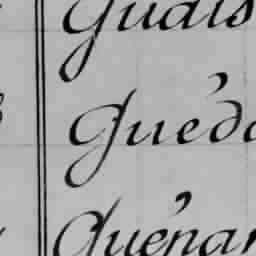 Gudis
Guéd
Guénar